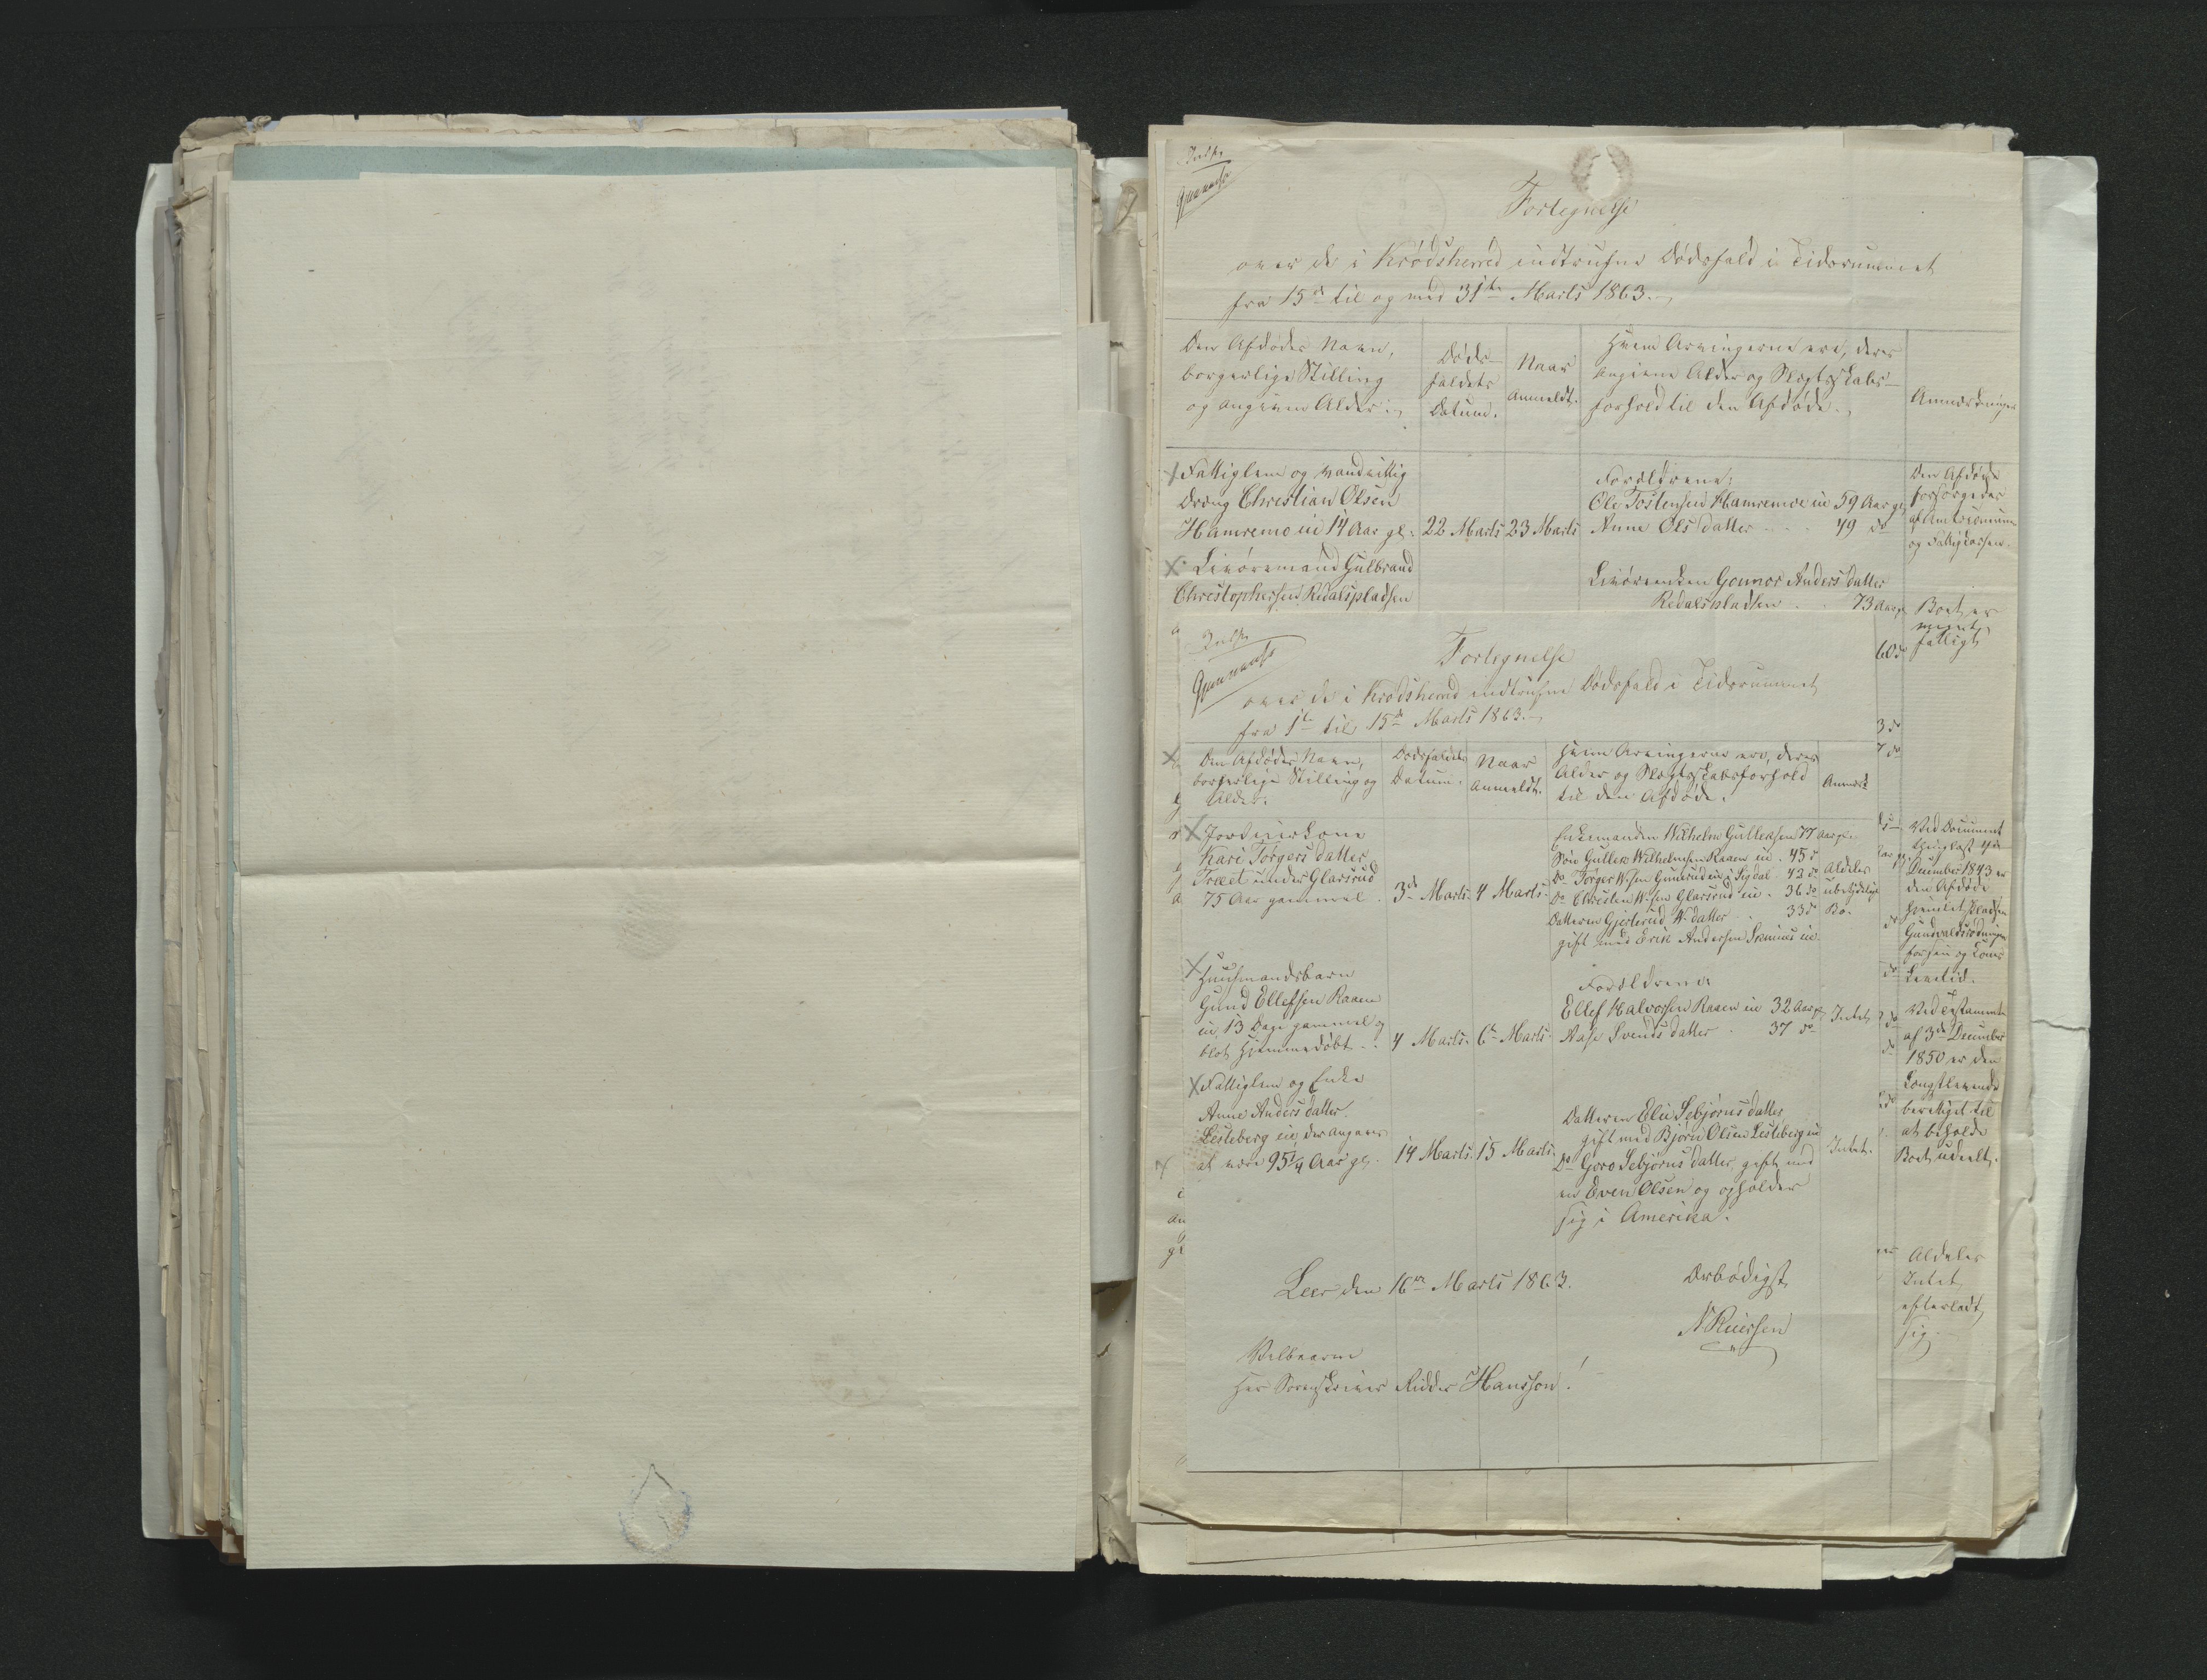 Fortegnelse
over de i Krødsherred indtrufne Dødsfald i Tidsrummet
fra 15de til og med 31te Marts 1863.
Den Afdødes Navn,
borgerlige Stilling
og angivne Alder.
Døds-
faldets
Datum.
Naar
anmeldt.
Hvem Arvingerne ere, deres
angivne Alder og Slægtskabs-
forhold til den Afdøde.
Anmærkninger
Fattiglem og vandvittig
Dreng Christian Olsen
Hamremoeie 14 Aar gl.
22 Marts
23 Marts
Forældrene:
Ole Tostensen Hamremoeie 59 Aar gl
Anne Olsdatter 49 do
Den Afdøde
forsørgedes
af Amtscommun
og Fattigkassen.
Livøremand Gulbrand
Christophersen Redalspladsen
Livørenken Gonnor Andersdatter
Redalspladsen 73 Aar gl
60 do
Boet er
meget
fattigt
3 do
7 do
Fortegnelse
over de i Krødsherred indtrufne Dødsfald i Tidsrummet
fra 1te til 15de Marts 1863.
Den Afdødes Navn,
borgerlige Stilling og
Alder.
Dødsfaldets
Datum.
Naar
anmeldt.
Hvem Arvingerne ere, deres
Alder og Slægtskabsforhold
til den Afdøde.
Anmærk
Kari Torgersdatter
Træet under Glarsrud
75 Aar gammel
3de Marts
4 Marts
Enkemanden Wilhelm Gulleksen 77 Aar gl.
Søn Gullek Wilhelmsen Raaen eie 45 do
Do Torger W.sen Gunerudeie i Sigdal 42 do
Do Christen W.sen Glarsrud eie 36 do
Datteren Gjertrud W.datter 33 do
gift med Erik Andersen Skinnes eie
Aldeles
ubetydeligt
Bo.
Huusmandsbarn
Gund Ellefsen Raaen
eie, 13 Dage gammel og
blot hjemmedøbt.
4 Marts.
6te Marts.
Forældrene
Ellef Halvorsen Raaen eie 32 Aar gl
Aase Svendsdatter 37 do
Intet
Fattiglem og Enke
Anne Andersdatter
Lesteberg eie, der angaves
at være 95¼ Aar gl.
14 Marts.
15 Marts.
Datteren Elie Sebjørnsdatter
gift med Bjørn Olsen Lesteberg eie
Do Goro Sebjørnsdatter, gift med
en Even Olsen og opholder
sig i Amerika.
Intet.
Leer den 16de Marts 1863.
Ærbødigst
Velbaarne
Herr Sorenskriver Ridder Hansson!
Ved Document
thinglæst 4de
December 1843 er
den Afdøde
hjemlet Pladsen
Gunvaldsrødningen
for sin og Kones
Levetid.
Ved Testamente
af 3de December
1850 er den
Længstlevende
berettiget til
at beholde
Boet udeelt.
Aldeles
Intet
efterladt
sig.